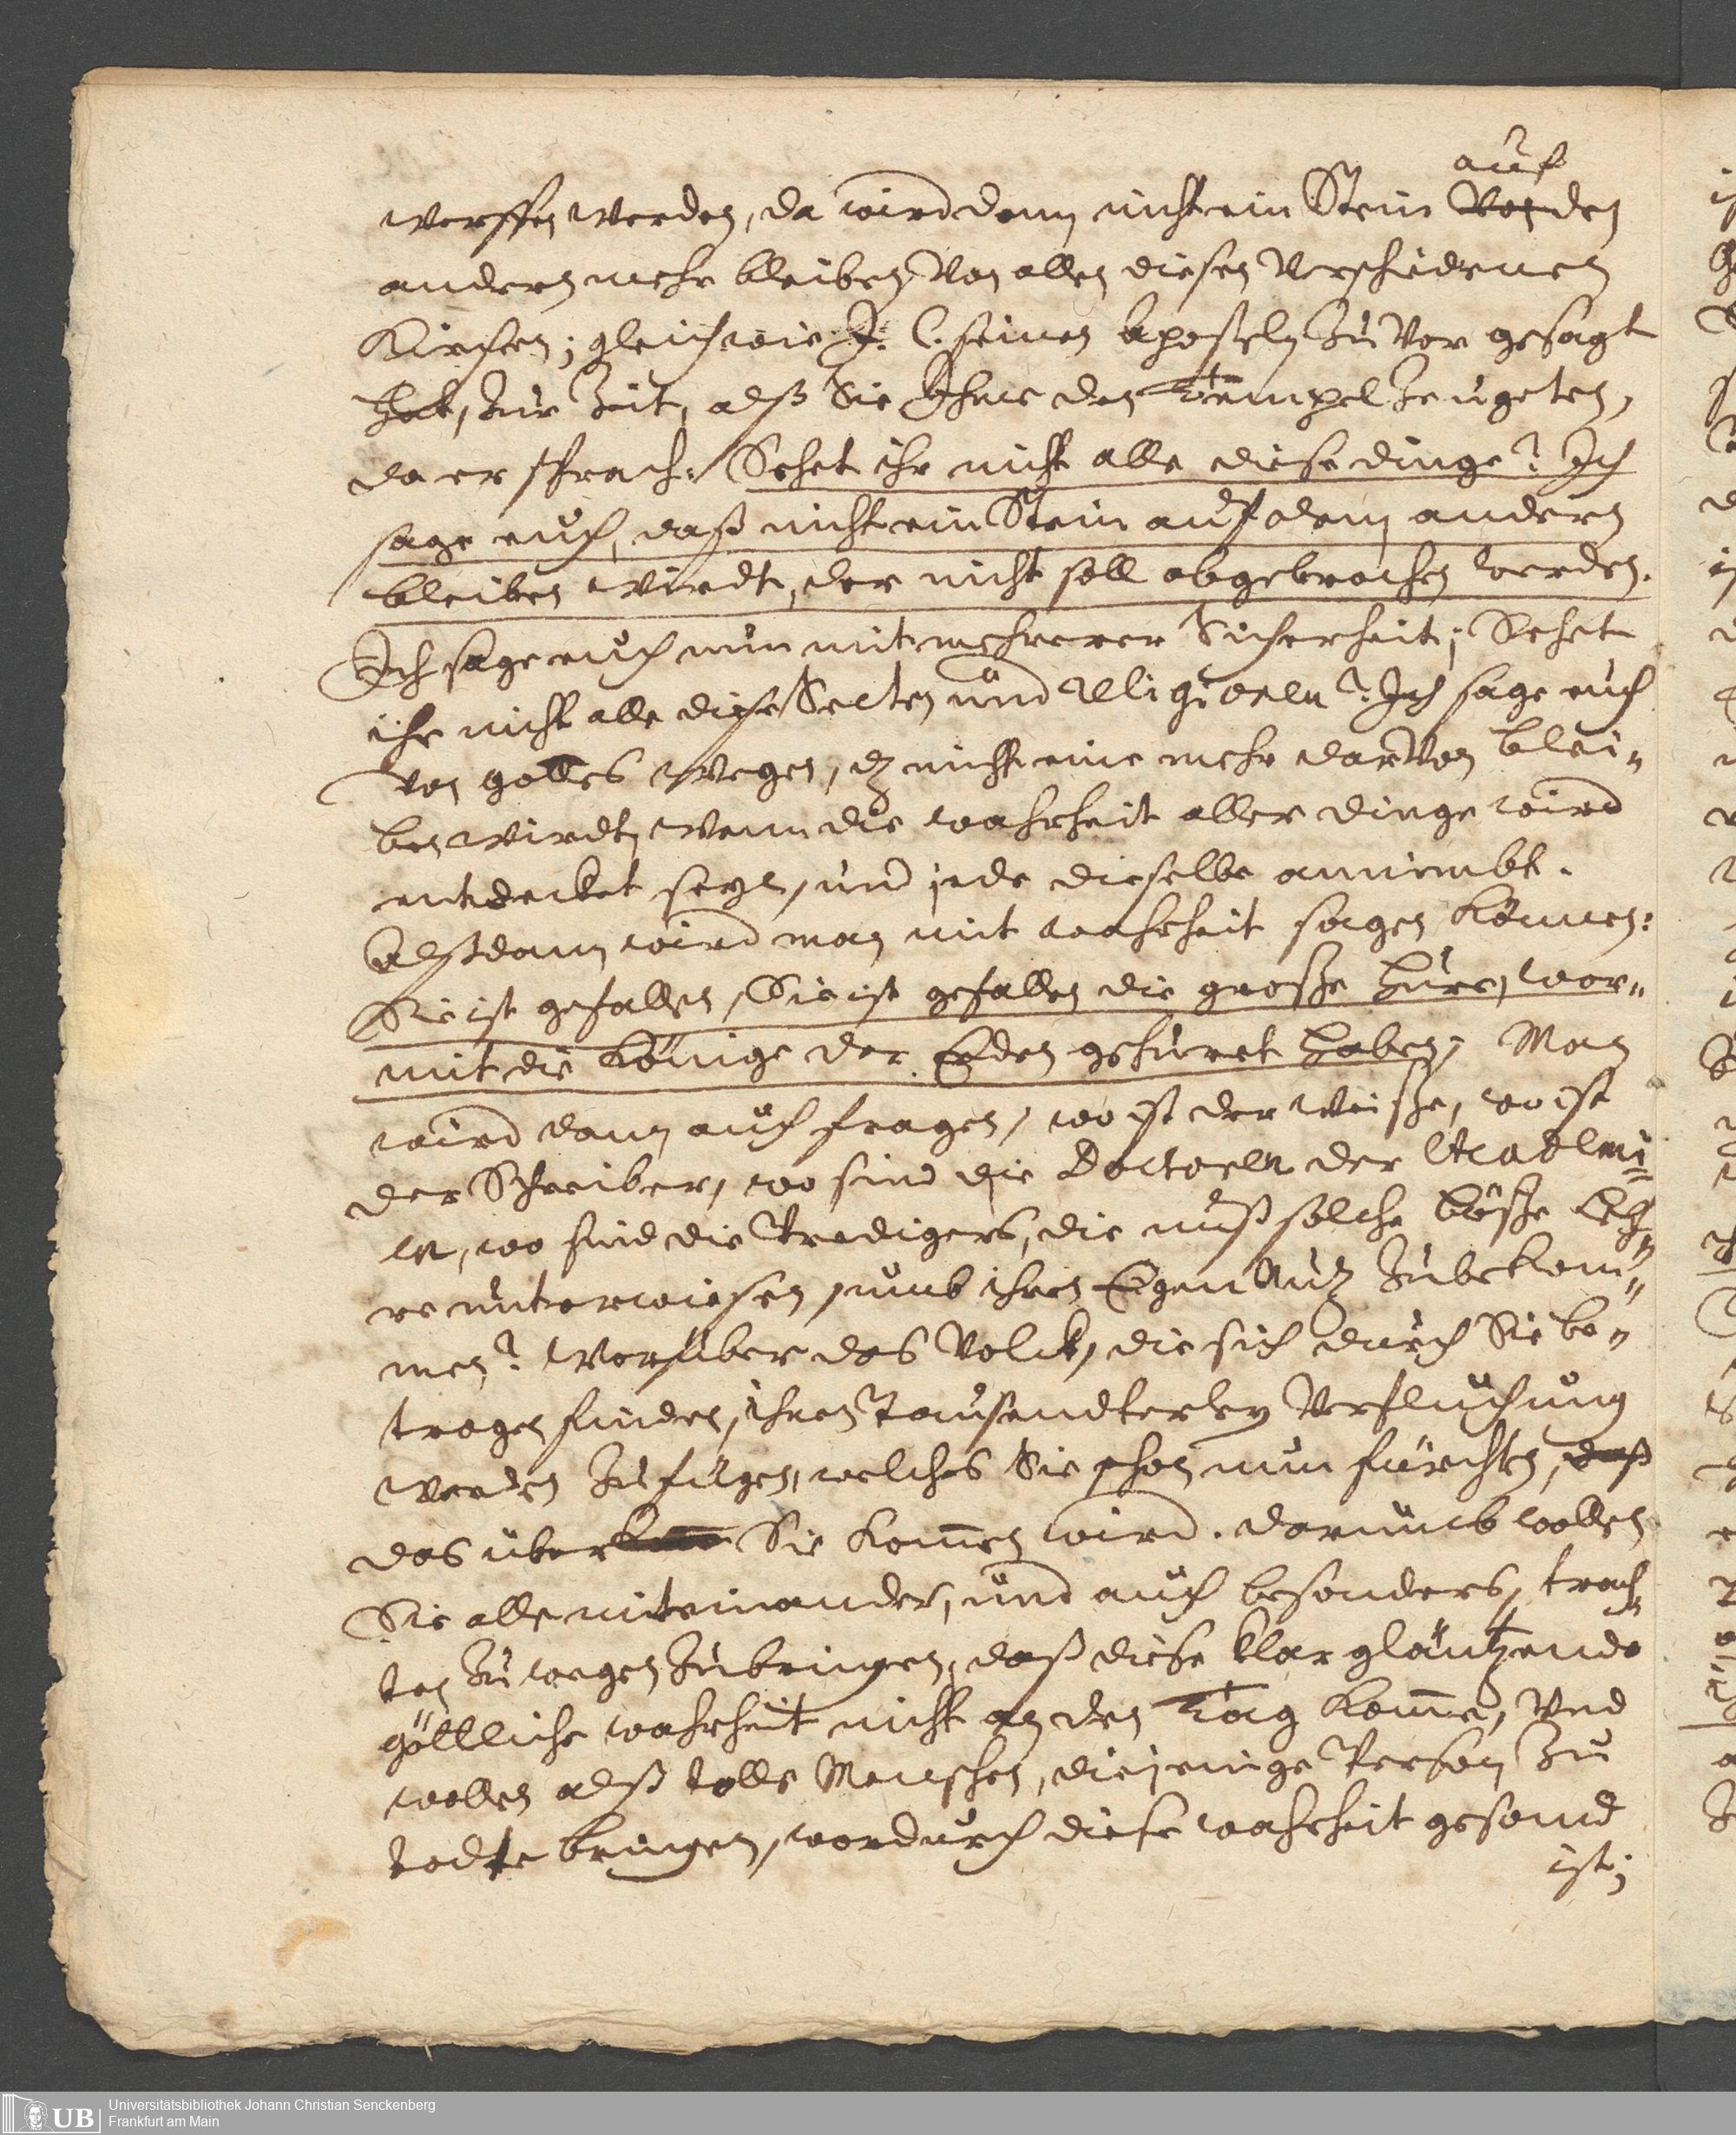 auf
worffen werden, da wird dann nicht ein Stein von den
andern mehr bleiben, Von allen diesen Verschiedenen
Kirchen; gleichwie J. C. seinen Aposteln zu vor gesagt
hat, zur Zeit, alß Sie Ihme den Tempel zeugeten,
da er sprach: Sehet ihr nicht alle diese dinge? Ich
sage euch, daß nicht ein Stein auf dem andern
bleiben wirdt, der nicht soll abgebrochen werden.
Ich sage euch nun mit mehrerer Sicherheit; Sehet
ihr nicht alle diese Secten und Religioenen? Ich sage euch
von gottes Wegen, dz nicht eine mehr darvon blei„
ben wirdt, Wenn die wahrheit aller dinge wird
entdecket seyn, und jede dieselbe annimbt.
Alßdann wird man mit wahrheit sagen können:
Sie ist gefallen, Sie ist gefallen die grosse Hure, wor„
mit die Könige der Erden gehuret haben; Man
wird dann auch fragen, wo ist der Weisse, wo ist
der Schreiber, wo sind die Doctoren der Academi=
en, wo sind die Predigers, die unß solche bösse Leh„
re unterwiesen, umb ihren EigenNutz zubekom„
men? Worüber das Volck, die sich durch Sie be„
trogen finden, ihnen Tausendterley Verfluchung
werden zufügen, welches Sie schon nun fürchten, daß
das über Sie kommen wird. darumb wollen
Sie alle miteinander, und auch besonders, trach„
ten zu wegen zubringen, daß diese klar gläntzende
göttliche wahrheit nicht an den Tag komme, Und
wollen alß tolle Menschen, diejenige Person zu
todte bringen, wordurch diese wahrheit gesand
ist;
Universitätsbibliothek Johann Christian Senckenberg
Frankfurt am Main
UB